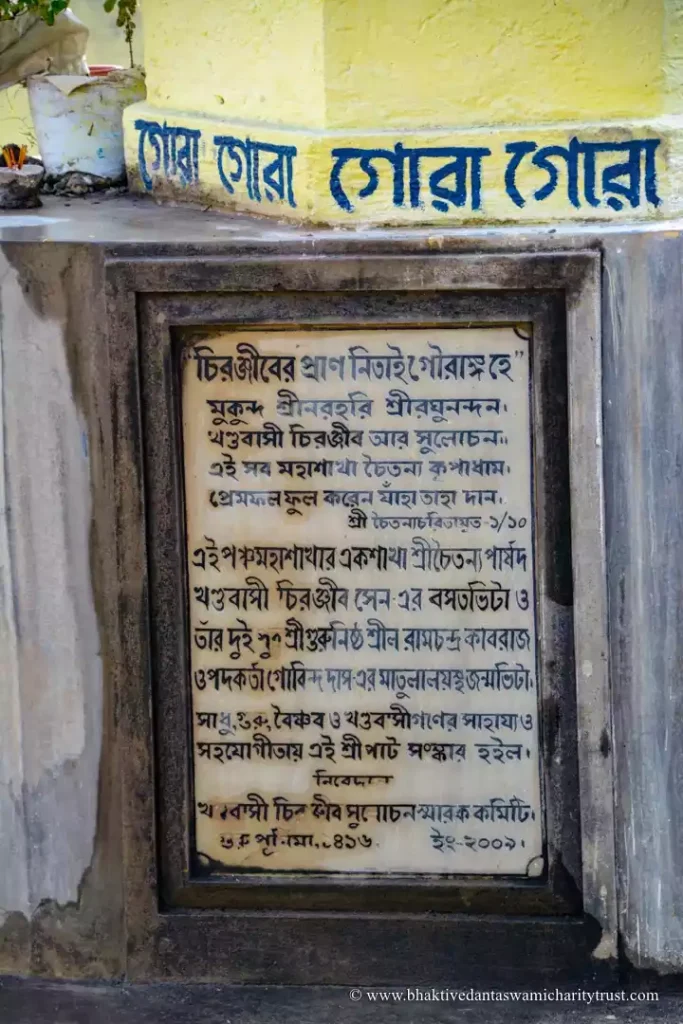 গোরা গোরা গোরা গোরা
"চিরঞ্জীবের প্রাণ নিতাই গৌরাঙ্গ হে"
মুকুন্দ শ্রীনরহরি শ্রীরঘুনন্দন।
খণ্ডবাসী চিরঞ্জীব আর সুলোচন।।
এই সব মহাশাখা চৈতন্য কৃপাধাম।
প্রেমফলফুল করেন যাঁহা তাহা দান।
শ্রী চৈতন্যচরিতামৃত-১/১০
এই পঞ্চমহাশাখার একশাখা শ্রীচৈতন্য পার্ষদ
খণ্ডবাসী চিরঞ্জীব সেন-এর বসতভিটা ও
তাঁর দুই শ্রীগুরুনিষ্ঠ শ্রীল রামচন্দ্র কবিরাজ
ও পদকর্তা গোবিন্দ দাস-এর মাতুলালয়স্থ জন্মভিটা।
সাধু, গুরু, বৈষ্ণব ও খণ্ডবাসীগণের সাহায্য ও
সহযোগীতায় এই শ্রীপাট সংস্কার হইল।
নিবেদনে
খণ্ডবাসী চিরঞ্জীব সুলোচন স্মারক কমিটি।
গুরু পূর্ণিমা, ১৪১৬ ইং-২০০৯।
© www.bhaktivedantaswamicharitytrust.com